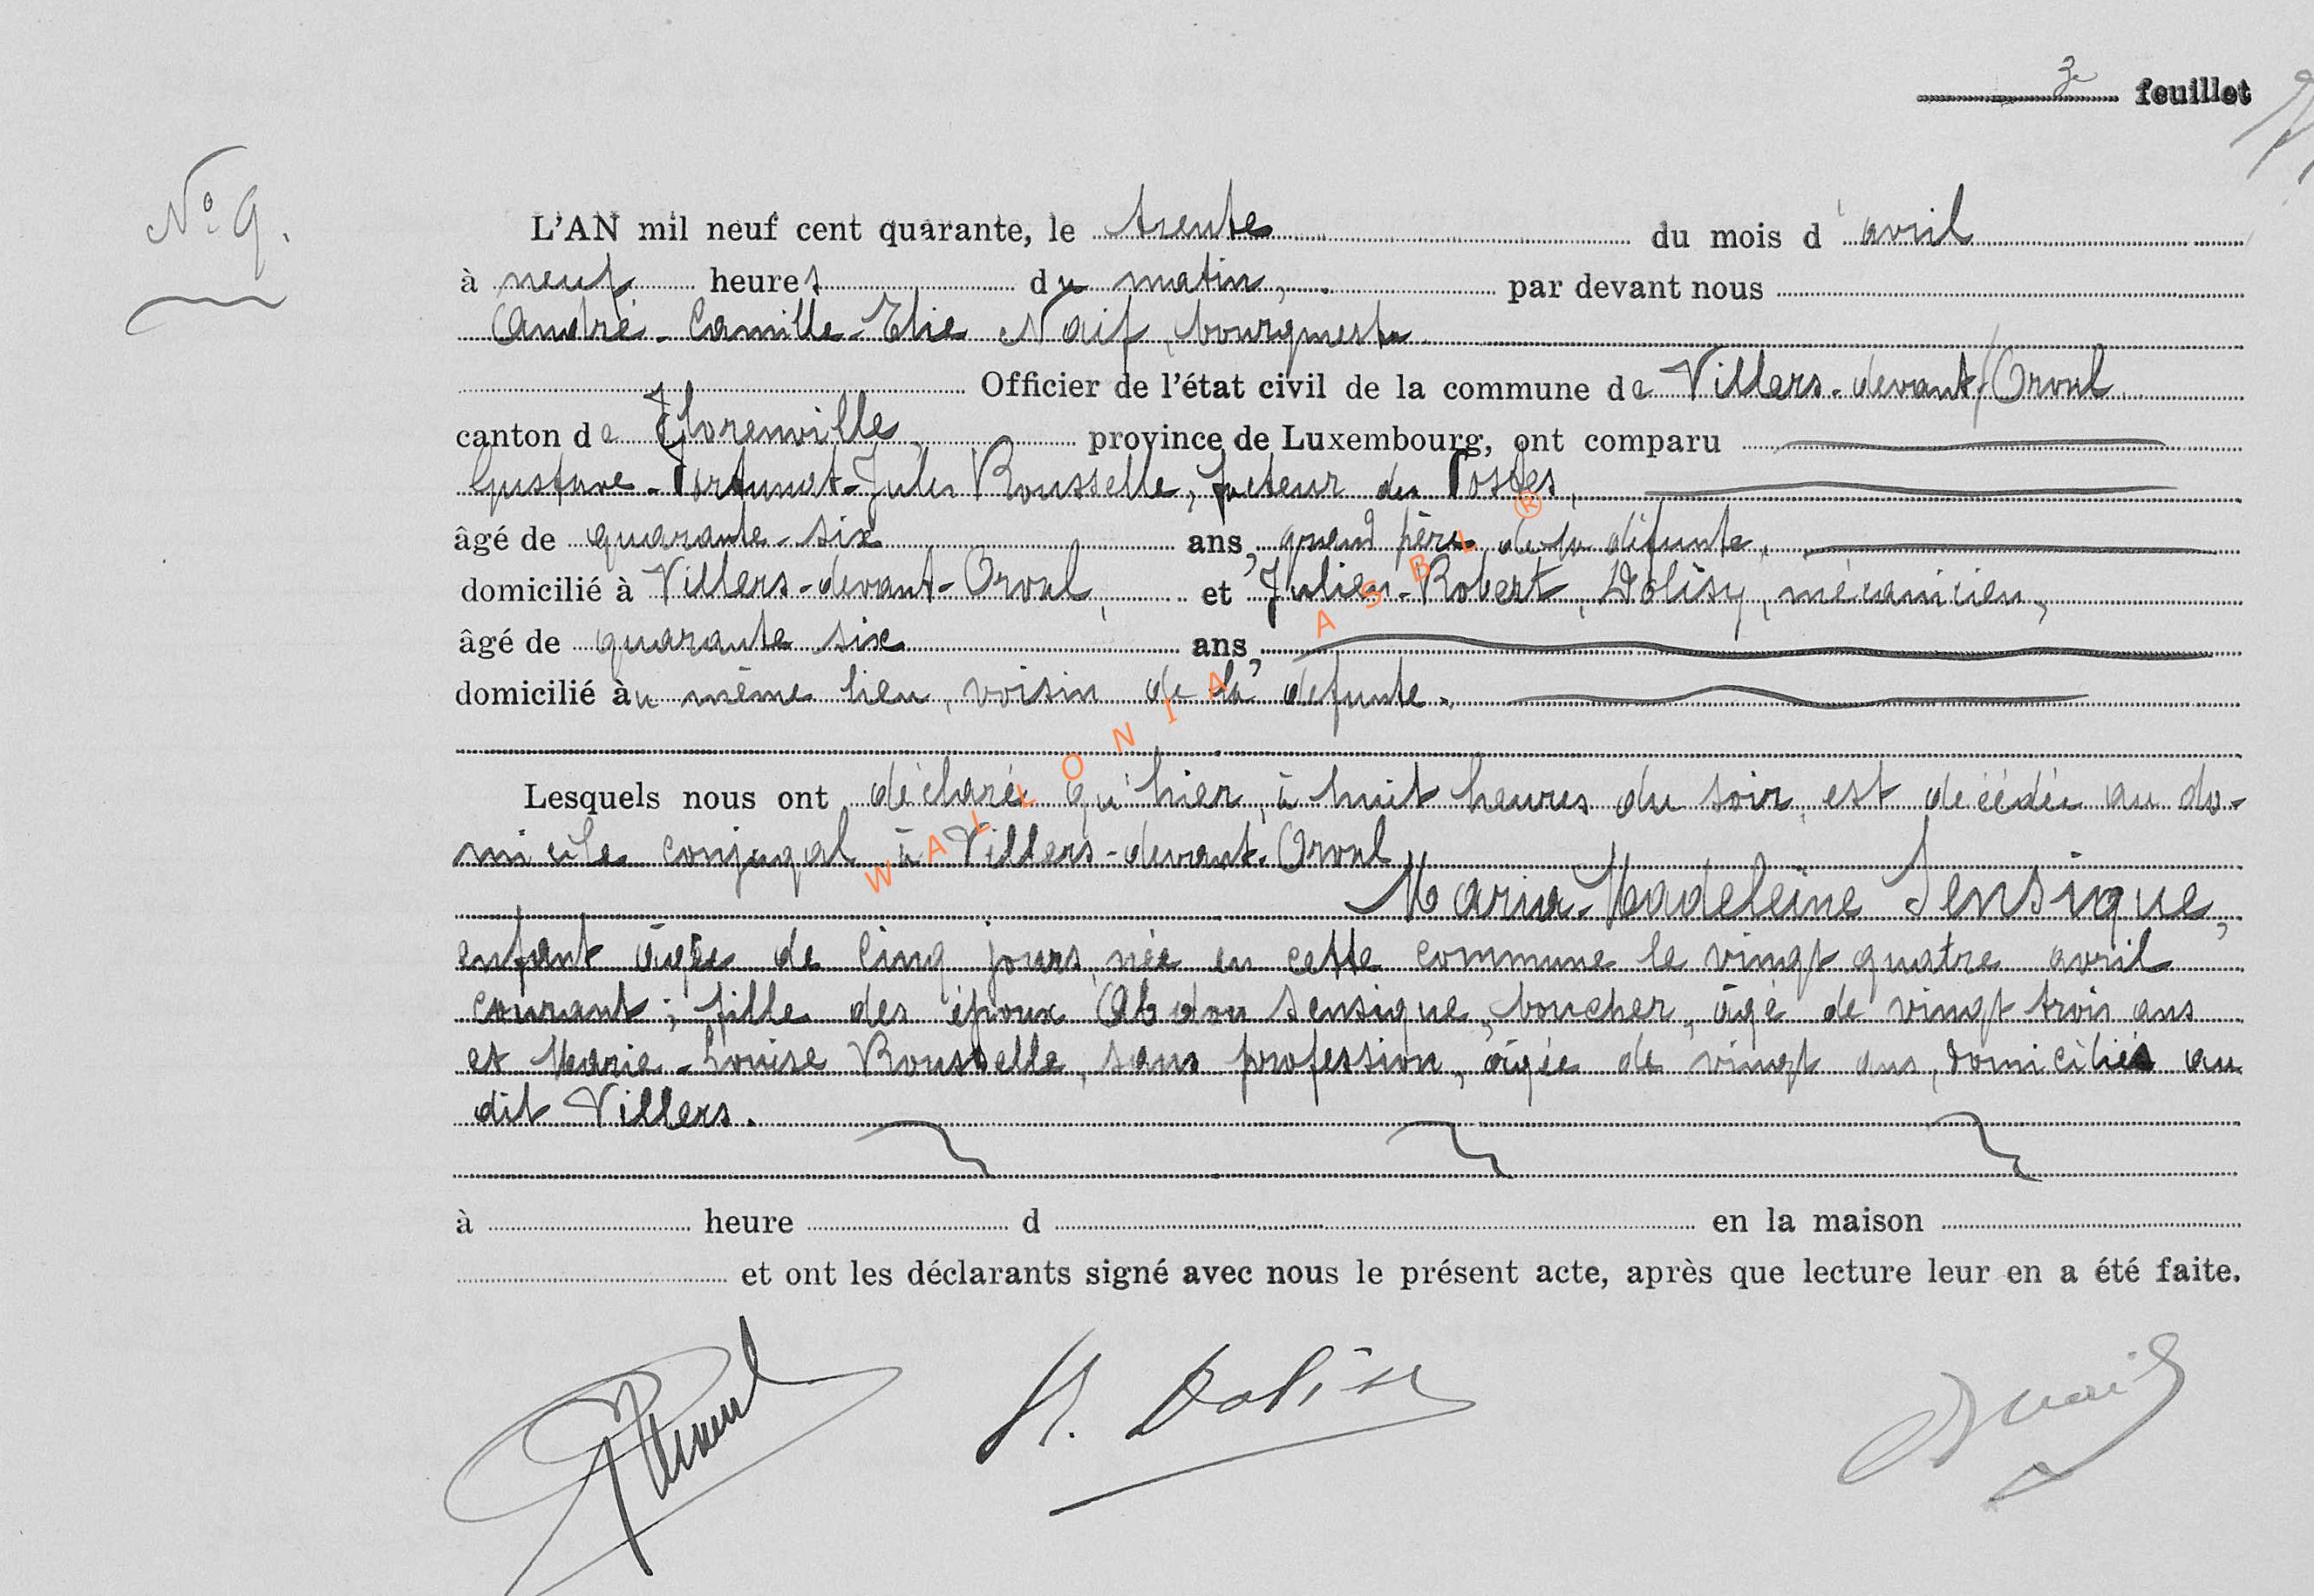 3e feuillet
N° 9.
L'AN mil neuf cent quarante, le trente du mois d' avril
à neuf heures du matin, par devant nous
André-Camille-Elie Naif, bourgmestre
Officier de l'état civil de la commune de Villers-devant-Orval
canton de Florenville province de Luxembourg, ont comparu
Gustave-Fortunat-Jules Rousselle, facteur des Postes,
âgé de quarante-six ans, grand père de la défunte,
domicilié à Villers-devant-Orval, et Julien-Robert, Dolisy, mécanicien,
âgé de quarante six ans,
domicilié au même lieu, voisin de la défunte.
Lesquels nous ont déclaré qu'hier, à huit heures du soir, est décédée au do-
micile conjugal à Villers-devant-Orval
Maria-Madeleine Sensique,
enfant âgée de cinq jours, née en cette commune le vingt quatre avril
courant; fille des époux Abdon Sensique, boucher, âgé de vingt trois ans
et Marie-Louise Rousselle, sans profession, âgée de vingt ans, domiciliés au
dit Villers.
à heure d en la maison
et ont les déclarants signé avec nous le présent acte, après que lecture leur en a été faite.
R. Dolisy
WALLONIA ASBL ®